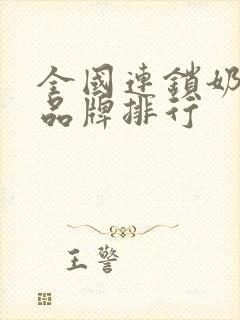 全國連鎖奶
品牌排行
王警